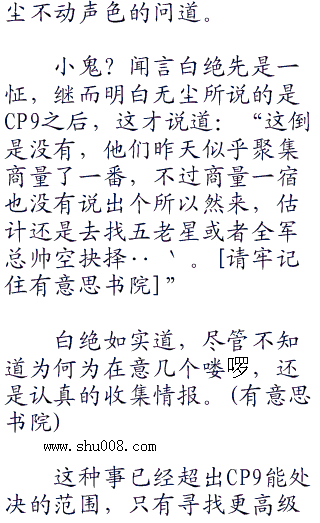 尘不动声色的问道。
小鬼？闻言白绝先是一
怔，继而明白无尘所说的是
CP9之后，这才说道：“这倒
是没有，他们昨天似乎聚集
商量了一番，不过商量一宿
也没有说出个所以然来，估
计还是去找五老星或者全军
总帅空抉择··‵。[请牢记
住有意思书院]”
白绝如实道，尽管不知
道为何为在意几个喽啰，还
是认真的收集情报。(有意思
书院)
www.shu008.com
这种事已经超出CP9能处
决的范围，只有寻找更高级